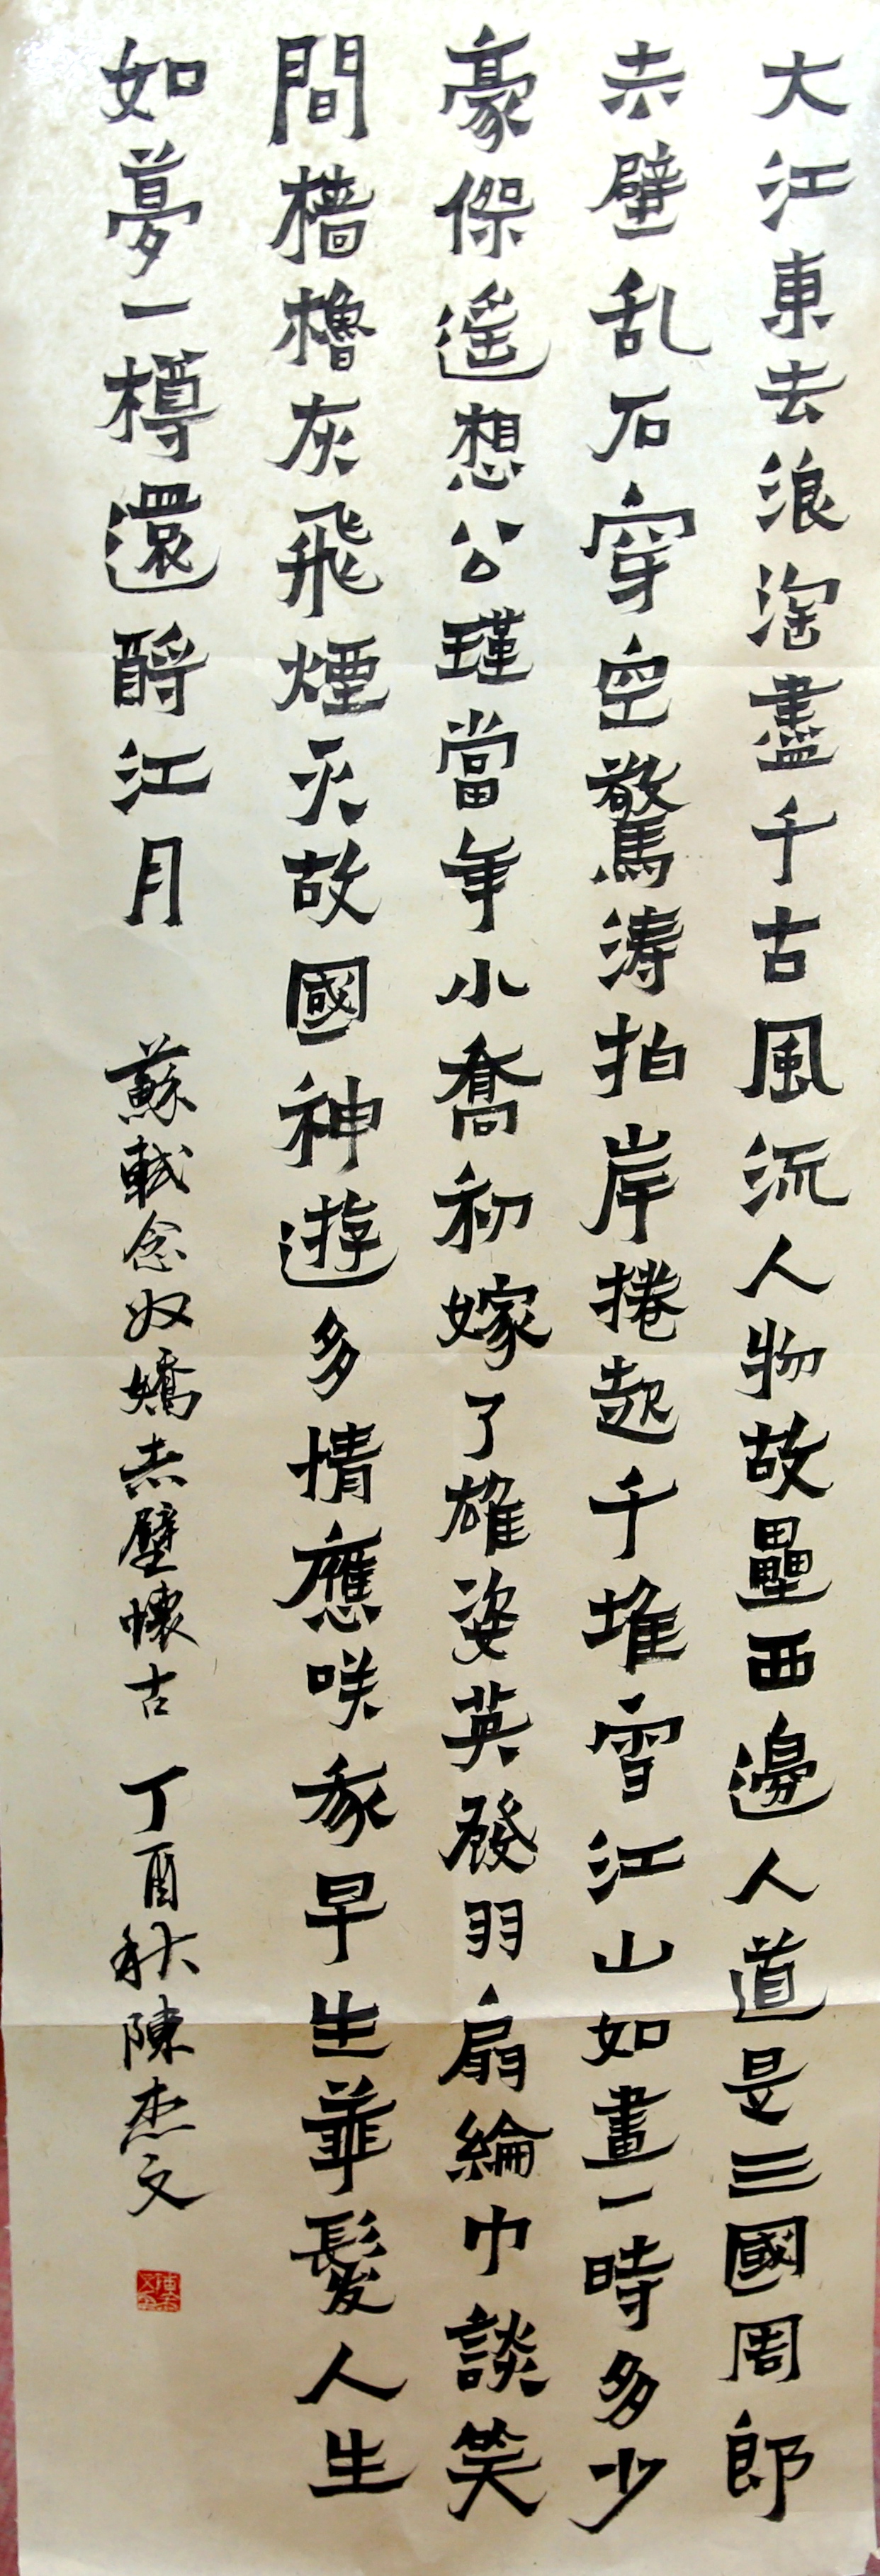 大江東去浪淘盡千古風流人物故壘西邊人道是三國周郎
赤壁乱石穿空驚涛拍岸捲起千堆雪江山如畫一時多少
豪傑遥想公瑾當年小喬初嫁了雄姿英發羽扇綸巾談笑
間檣櫓灰飛煙灭故國神遊多情應咲我早生華髮人生
如夢一樽還酹江月 蘇軾念奴嬌赤壁懷古 丁酉秋陳杰文